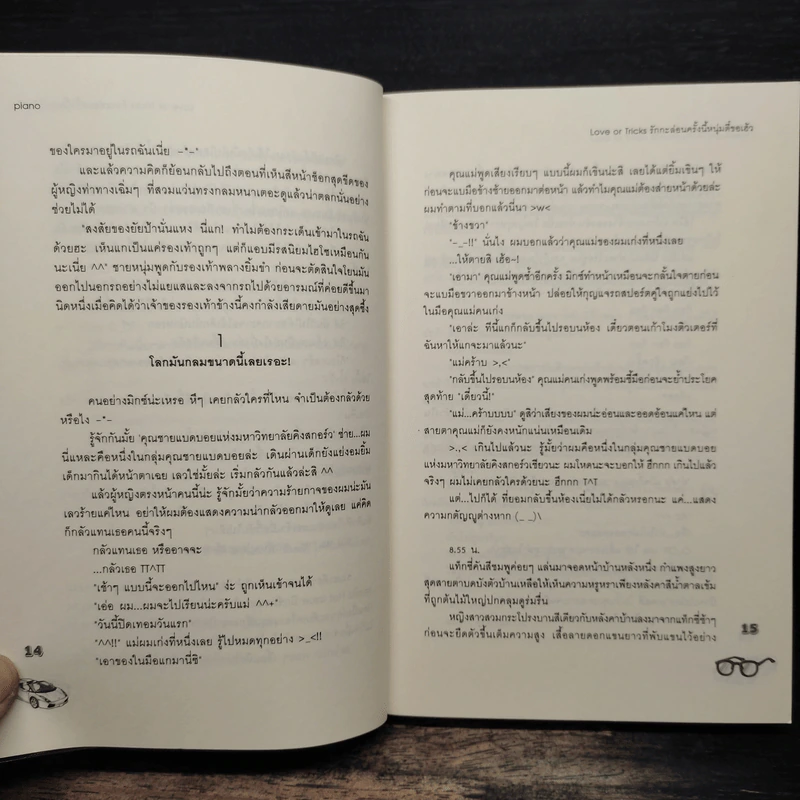 piano
ของใครมาอยู่ในรถฉันเนี่ย -*-"
และแล้วความคิดก็ย้อนกลับไปถึงตอนที่เห็นสีหน้าช็อกสุดขีดของ
ผู้หญิงท่าทางเฉิ่มๆ ที่สวมแว่นทรงกลมหนาเตอะดูแล้วน่าตลกนั่นอย่าง
ช่วยไม่ได้
"สงสัยของยัยป้านั่นแหง นี่แก! ทำไมต้องกระเด็นเข้ามาในรถฉัน
ด้วยฮะ เห็นแกเป็นแค่รองเท้าถูกๆ แต่ก็แอบมีรสนิยมไฮโซเหมือนกัน
นะเนี่ย ^^" ชายหนุ่มพูดกับรองเท้าพลางยิ้มขำ ก่อนจะตัดสินใจโยนมัน
ออกไปนอกรถอย่างไม่แยแสและลงจากรถไปด้วยอารมณ์ที่ค่อยดีขึ้นมา
นิดหนึ่งเมื่อคิดได้ว่าเจ้าของรองเท้าข้างนี้คงกำลังเสียดายมันอย่างสุดซึ้ง
1
โลกมันกลมขนาดนี้เลยเรอะ!
คนอย่างมิกซ์น่ะเหรอ หึๆ เคยกลัวใครที่ไหน จำเป็นต้องกลัวด้วย
หรือไง -*-
รู้จักกันมั้ย 'คุณชายแบดบอยแห่งมหาวิทยาลัยคิงสกอร์ว' ช่าย...ผม
นี่แหละคือหนึ่งในกลุ่มคุณชายแบดบอยล่ะ เดินผ่านเด็กยังแย่งอมยิ้ม
เด็กมากินได้หน้าตาเฉย เลวใช่มั้ยล่ะ เริ่มกลัวกันแล้วล่ะสิ ^^
แล้วผู้หญิงตรงหน้าคนนี้น่ะ รู้จักมั้ยว่าความร้ายกาจของผมน่ะมัน
เลวร้ายแค่ไหน อย่าให้ผมต้องแสดงความน่ากลัวออกมาให้ดูเลย แค่คิด
ก็กลัวแทนเธอคนนี้จริงๆ
กลัวแทนเธอ หรืออาจจะ
...กลัวเธอ TT^TT
"เช้าๆ แบบนี้จะออกไปไหน" ง่ะ ถูกเห็นเข้าจนได้
"เอ่อ ผม...ผมจะไปเรียนน่ะครับแม่ ^^+"
"วันนี้ปิดเทอมวันแรก"
"^^!!" แม่ผมเก่งที่หนึ่งเลย รู้ไปหมดทุกอย่าง >_<!!
"เอาของในมือแกมานี่ซิ"
14
Love or Tricks รักกะล่อนครั้งนี้หนุ่มตี๋ขอเฮ้ว
คุณแม่พูดเสียงเรียบๆ แบบนี้ผมก็เขินน่ะสิ เลยได้แต่ยิ้มเขินๆ ให้
ก่อนจะแบมือข้างซ้ายออกมาต่อหน้า แล้วทำไมคุณแม่ต้องส่ายหน้าด้วยล่ะ
ผมทำตามที่บอกแล้วนี่นา >w<
"ข้างขวา"
"-_-!!" นั่นไง ผมบอกแล้วว่าคุณแม่ของผมเก่งที่หนึ่งเลย
...ให้ตายสิ เฮ้อ~!
"เอามา" คุณแม่พูดซ้ำอีกครั้ง มิกซ์ทำหน้าเหมือนจะกลั้นใจตายก่อน
จะแบมือขวาออกมาข้างหน้า ปล่อยให้กุญแจรถสปอร์ตคู่ใจถูกแย่งไปไว้
ในมือคุณแม่คนเก่ง
"เอาล่ะ ทีนี้แกก็กลับขึ้นไปรอบนห้อง เดี๋ยวตอนเก้าโมงติวเตอร์ที่
ฉันหาให้แกจะมาแล้วนะ"
"แม่คร้าบ >,<"
"กลับขึ้นไปรอบนห้อง" คุณแม่คนเก่งพูดพร้อมชี้มือก่อนจะย้ำประโยค
สุดท้าย "เดี๋ยวนี้!"
"แม่...คร้าบบบบ" ดูสิว่าเสียงของผมน่ะอ่อนและออดอ้อนแค่ไหน แต่
สายตาคุณแม่ก็ยังคงหนักแน่นเหมือนเดิม
>.,< เกินไปแล้วนะ รู้มั้ยว่าผมคือหนึ่งในกลุ่มคุณชายแบดบอย
แห่งมหาวิทยาลัยคิงสกอร์วเชียวนะ ผมโหดนะจะบอกให้ ฮึกกก เกินไปแล้ว
จริงๆ ผมไม่เคยกลัวใครด้วยนะ ฮึกกก T^T
แต่...ไปก็ได้ ที่ยอมกลับขึ้นห้องเนี่ยไม่ได้กลัวหรอกนะ แค่...แสดง
ความกตัญญูต่างหาก (_ _)\
8.55 น.
แท็กซี่คันสีชมพูค่อยๆ แล่นมาจอดหน้าบ้านหลังหนึ่ง กำแพงสูงยาว
สุดสายตาบดบังตัวบ้านเหลือให้เห็นความหรูหราเพียงหลังคาสีน้ำตาลเข้ม
ที่ถูกต้นไม้ใหญ่ปกคลุมดูร่มรื่น
หญิงสาวสวมกระโปรงบานสีเดียวกับหลังคาบ้านลงมาจากแท็กซี่ช้าๆ
ก่อนจะยืดตัวขึ้นเต็มความสูง เสื้อลายดอกแขนยาวที่พับแขนไว้อย่าง
15